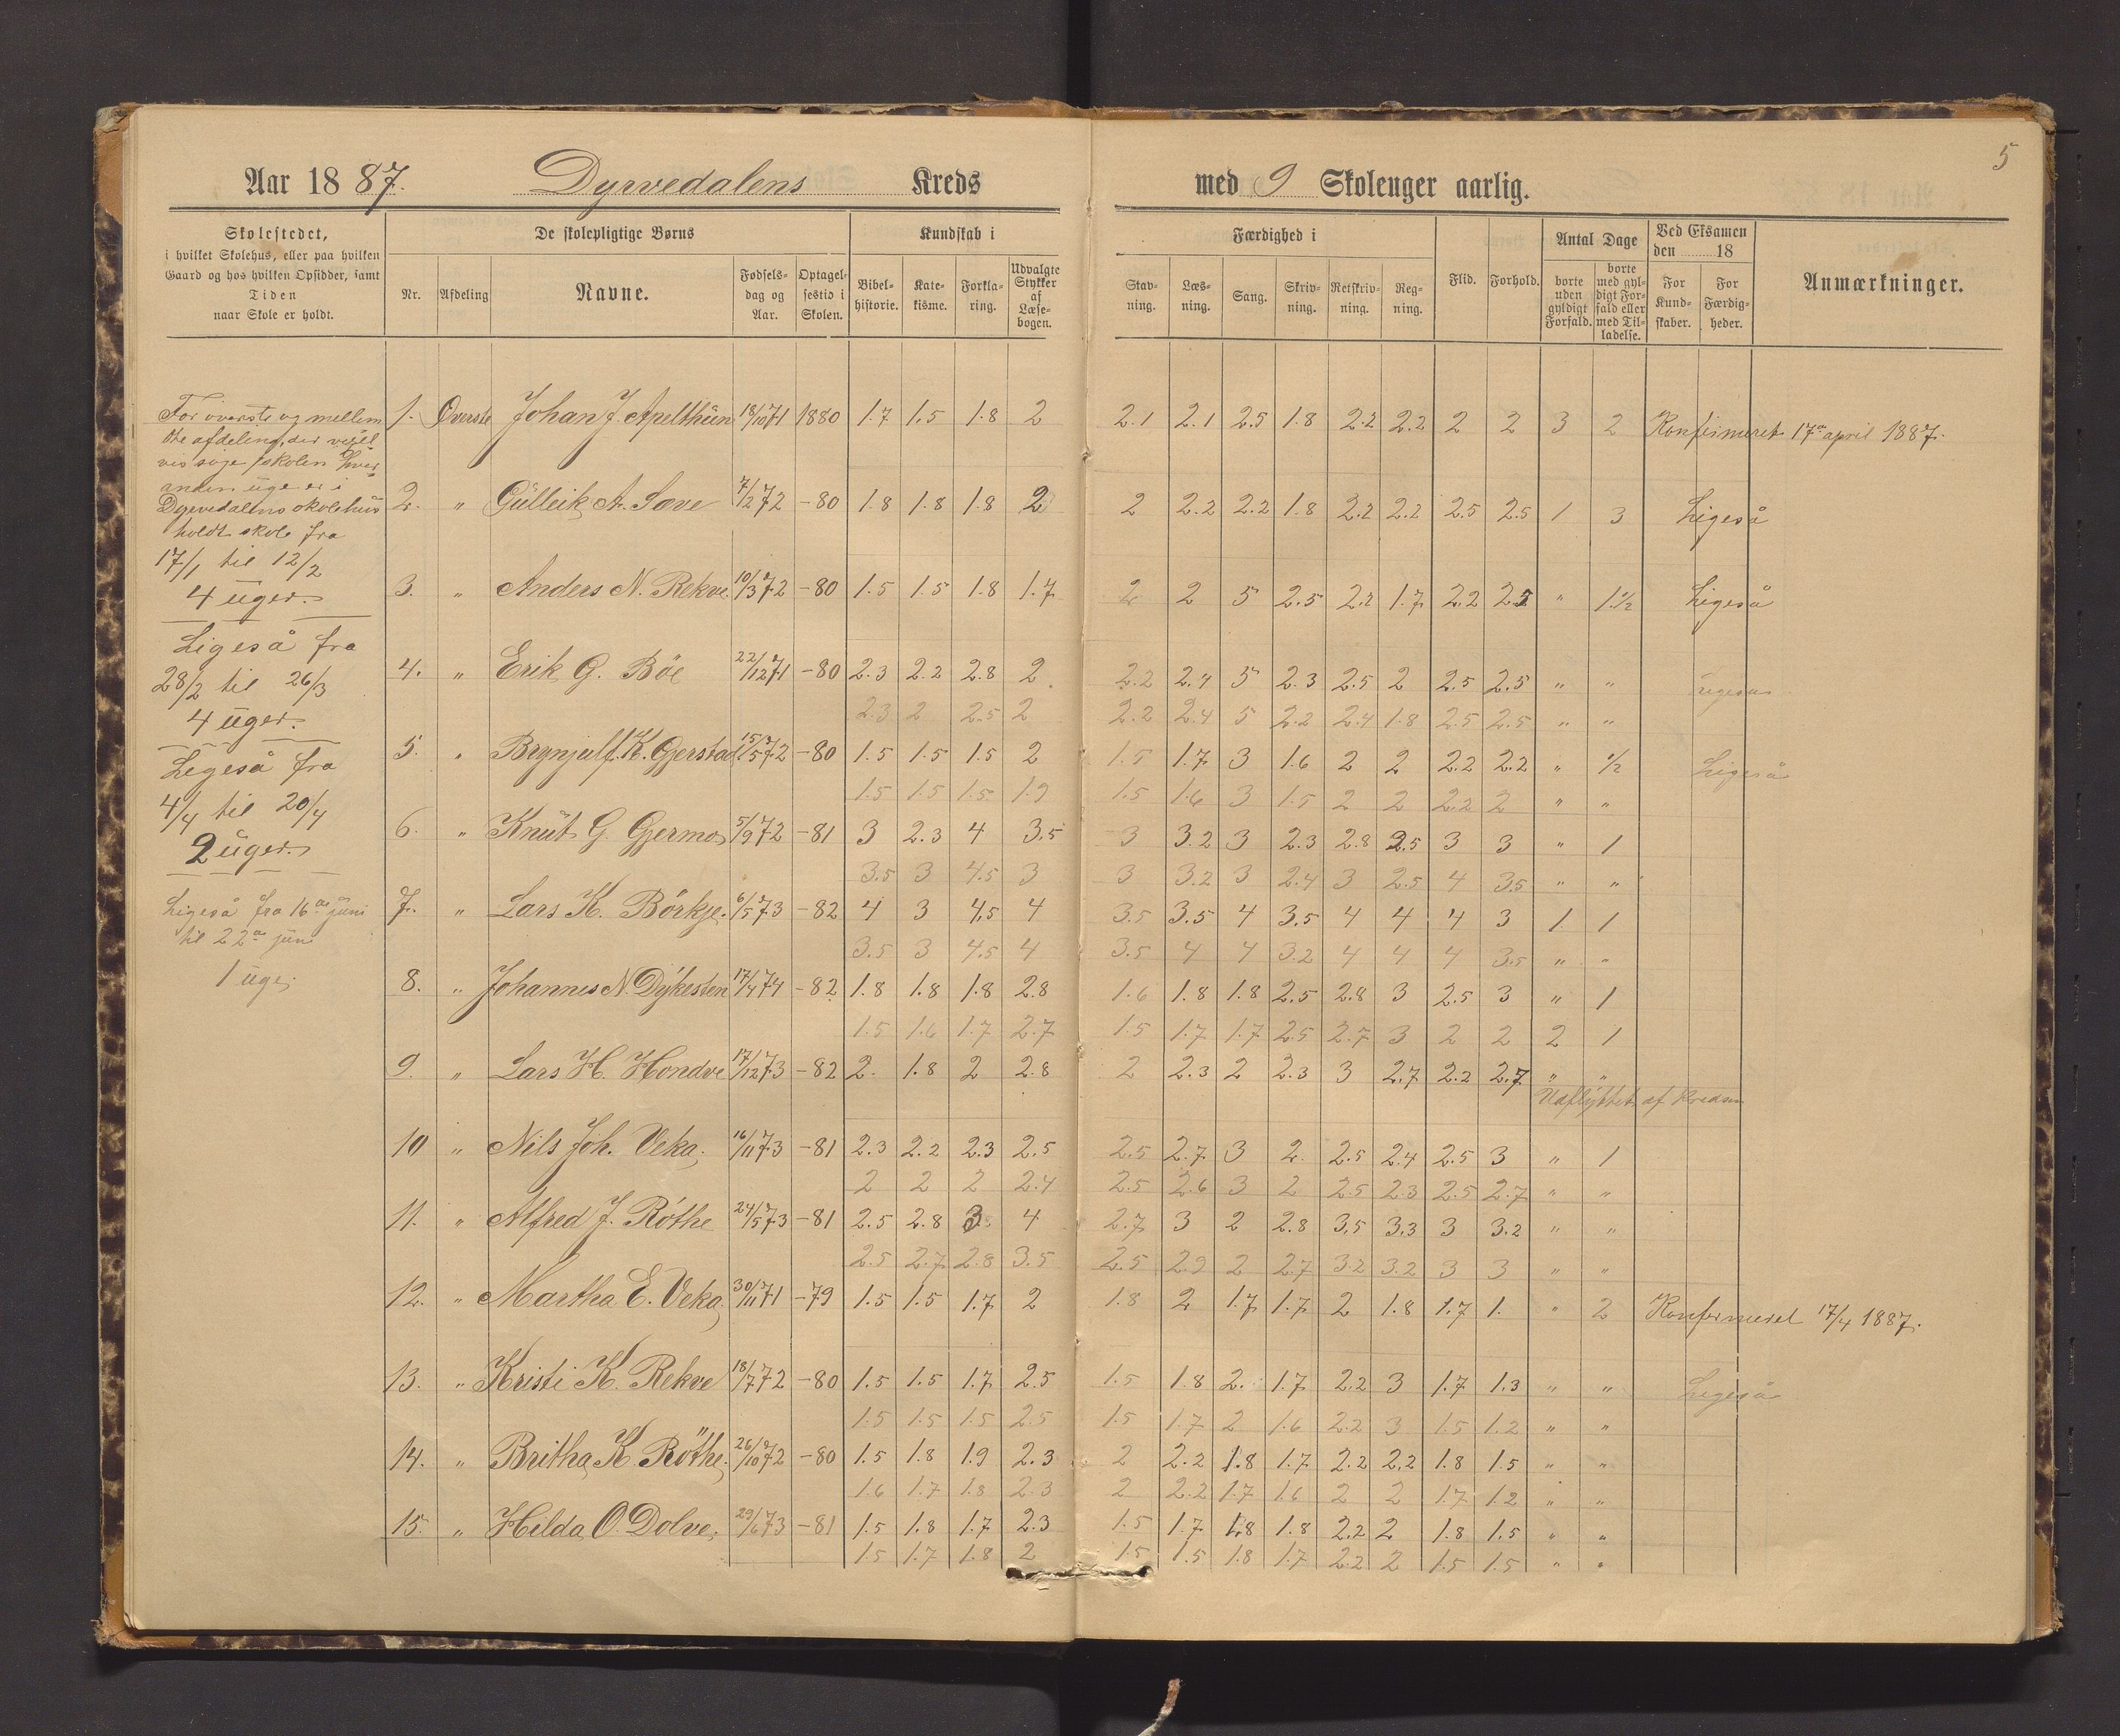 5
Aar 1887. Dyrvedalens Kreds med 9 Skoleuger aarlig.
Skolestedet,
i hvilket Skolehus, eller paa hvilken
Gaard og hos hvilken Opsidder, samt
Tiden
naar Skole er holdt.
De skolepligtige Børns
Nr. Afdeling Navne. Fødsels-dag og Aar. Optagel-sestid i Skolen.
Kundskab i
Bibel-historie. Kate-kisme. Forkla-ring. Udvalgte Stykker af Læse-bogen.
Færdighed i
Stav-ning. Læs-ning. Sang. Skriv-ning. Retskriv-ning. Reg-ning.
Flid. Forhold.
Antal Dage
borte uden gyldigt Forfald. borte med gyl-digt For-fald eller med Til-ladelse.
Ved Eksamen
den 18
For Kund-skaber. For Færdig-heder.
Anmærkninger.
For øverste og mellem
ste afdeling, der vexel
vis søge skolen hver
anden uge er i
Dyrvedalens skolehus
holdt skole fra
17/1 til 12/2
4 uger.
Ligeså fra
28/2 til 26/3
4 uger.
Ligeså fra
4/4 til 20/4
2 uger.
Ligeså fra 16de juni
til 22de juni
1 uge.
1. Øverste Johan J. Apelthün 18/10 71 1880 1.7 1.5 1.8 2 2.1 2.1 2.5 1.8 2.2 2.2 2 2 3 2 Konfirmeret 17de april 1887.
2. " Gülleik A. Sæve 7/2 72 -80 1.8 1.8 1.8 2 2 2.2 2.2 1.8 2.2 2.2 2.5 2.5 1 3 Ligeså
3. " Anders N. Rekve. 10/3 72 -80 1.5 1.5 1.8 1.7 2 2 5 2.5 2.2 1.7 2.2 2.5 " 1.1/2 Ligeså
4. " Erik G. Böe 22/12 71 -80 2.3 2.2 2.8 2 2.2 2.4 5 2.3 2.5 2 2.5 2.5 " " Ligeså
2.3 2 2.5 2 2.2 2.4 5 2.2 2.4 1.8 2.5 2.5 " "
5. " Brynjulf K. Gjerstad 15/5 72 -80 1.5 1.5 1.5 2 1.5 1.7 3 1.6 2 2 2.2 2.2 " 1/2 Ligeså
1.5 1.5 1.5 1.9 1.5 1.6 3 1.5 2 2 2.2 2 " "
6. " Knüt G. Gjermo 5/9 72 -81 3 2.3 4 3.5 3 3.2 3 2.3 2.8 2.5 3 3 " 1
3.5 3 4.5 3 3 3.2 3 2.4 3 2.5 4 3.5 " "
7. " Lars K. Börkje. 6/5 73 -82 4 3 4.5 4 3.5 3.5 4 3.5 4 4 4 3 1 1
3.5 3 4.5 4 3.5 4 4 3.2 4 4 4 3.5 " "
8. " Johannes N. Dykesten 17/4 74 -82 1.8 1.8 1.8 2.8 1.6 1.8 1.8 2.5 2.8 3 2.5 3 " 1
1.5 1.6 1.7 2.7 1.5 1.7 1.7 2.5 2.7 3 2 2 2 1
9. " Lars H. Hondve 17/12 73 -82 2. 1.8 2 2.8 2 2.3 2 2.3 3 2.7 2.2 2.7 " "
Udflyttet af Kredsen
10 " Nils Joh. Veka. 16/11 73 -81 2.3 2.2 2.3 2.5 2.5 2.7 3 2. 2.5 2.4 2.5 3 " 1
2 2 2 2.4 2.5 2.6 3 2 2.5 2.3 2.5 2.7 " "
11. " Alfred J. Röthe 24/5 73 -81 2.5 2.8 3. 4 2.7 3 2 2.8 3.5 3.3 3 3.2 " "
2.5 2.7 2.8 3.5 2.5 2.9 2 2.7 3.2 3.2 3 3 " "
12. " Martha E. Veka. 30/11 71 -79 1.5 1.5 1.7 2 1.8 2 1.7 1.7 2 1.8 1.7 1. " 2 Konfirmeret 17/4 1887.
13. " Kristi K. Rekve 18/7 72 -80 1.5 1.5 1.7 2.5 1.5 1.8 2. 1.7 2.2 3 1.7 1.3 " " Ligeså
1.5 1.5 1.5 2.5 1.5 1.7 2 1.6 2.2 3 1.5 1.2 " "
14. " Britha K. Röthe. 26/10 72 -80 1.5 1.8 1.9 2.3 2 2.2 1.8 1.7 2.2 2.2 1.8 1.5 " "
1.6 1.7 1.8 2.3 2 2.2 1.7 1.6 2 2 1.7 1.2 " "
15. " Hilda O. Dolve. 29/6 73 -81 1.5 1.8 1.7 2.3 1.5 1.7 1.8 1.8 2.2 2 1.8 1.5 " "
1.5 1.7 1.8 2 1.5 1.5 1.8 1.7 2.2 2 1.5 1.5 " "